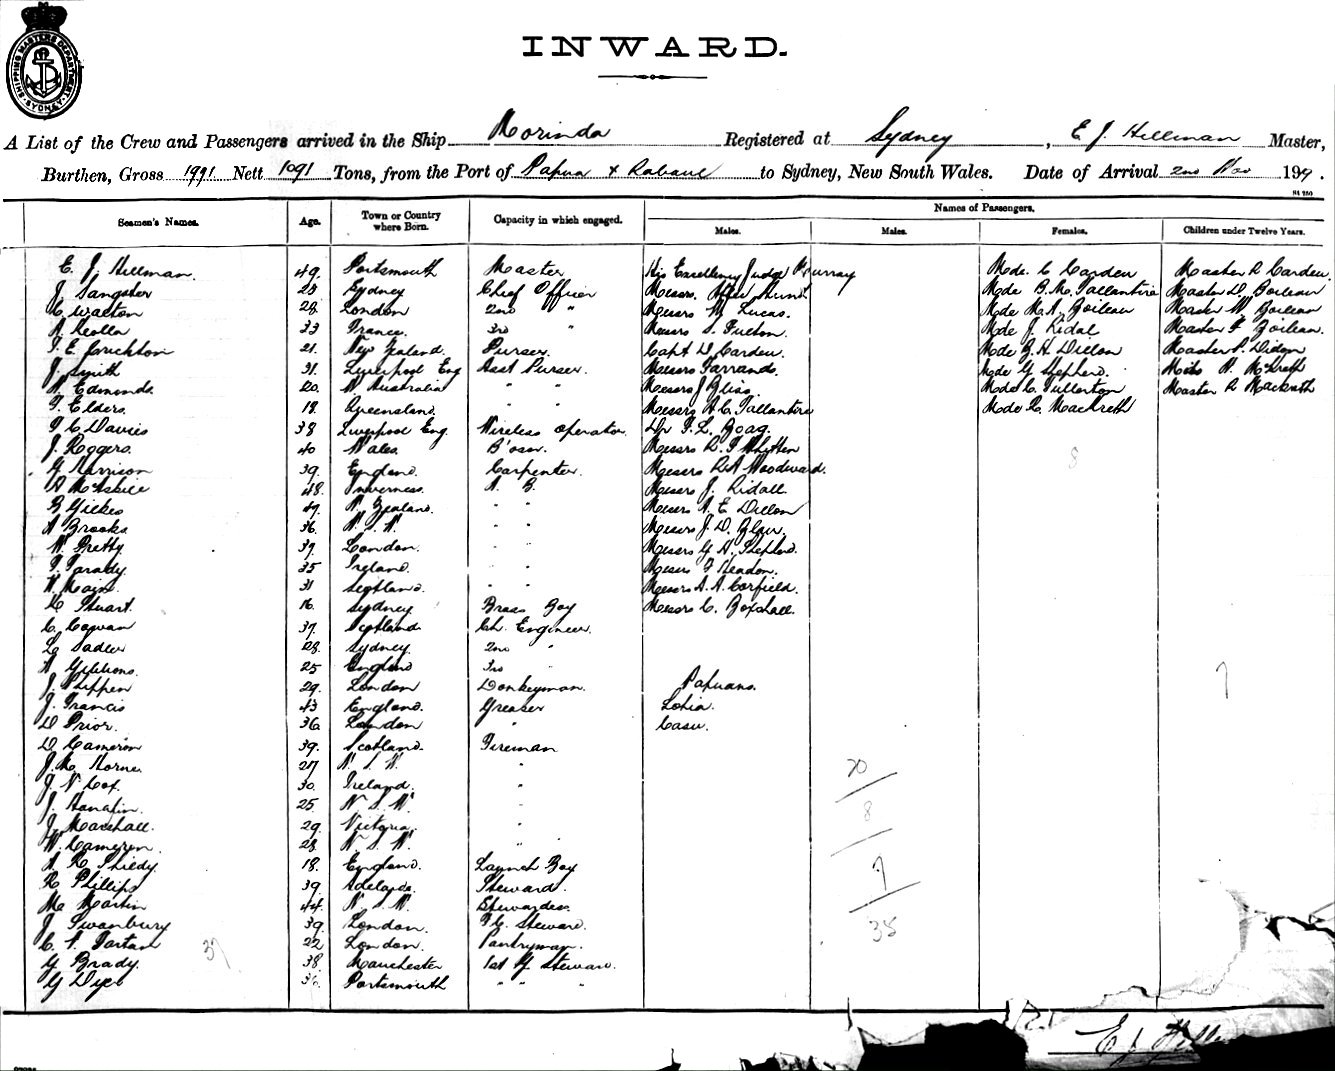 SHIPPING MASTERS DEPARTMENT
SYDNEY
INWARD.
A List of the Crew and Passengers arrived in the Ship Morinda Registered at Sydney, E. J. Hillman Master,
Burthen, Gross 1991 Nett 1091 Tons, from the Port of Papua & Rabaul to Sydney, New South Wales. Date of Arrival 2nd Nov 199.
Seamen's Names. Age. Town or Country where Born. Capacity in which engaged. Names of Passengers.
Males. Males. Females. Children under Twelve Years.
E. J. Hillman. 49. Portsmouth Master His Excellency Judge Murray Mde. C Carden Master R Carden
J Sangster 28 Sydney Chief Officer Messrs. Hunt Mde B. Mc. Tallantire Master D. Boileau
C. Walton 28. London 2nd " Messrs Lucas. Mde M. A. Boileau Master W Boileau
A 33 France. 3rd " Messrs S. Mde J. Ridal Master F Boileau.
F. E. Crichton 21. New Zealand. Purser. Capt D. Carden. Mde H. Dillon Master P. Dillon
J. Smith 31. Liverpool Eng Asst Purser. Messrs Farrands. Mde G Shepherd.
Edmunds 20. W Australia " " Messrs J Mde C. Fullerton Master R Mackreth
F. Elders. 19. Queensland. " " Messrs A. C. Tallantire Mde C. Mackreth
F C Davies 38 Liverpool Eng. Wireless Operator. Dr F. L. Boag.
J. Rogers. 40 Wales. B'osn. Messrs R. F Whitten 8
G Harrison 39. England. Carpenter. Messrs R. A Woodward.
48. Inverness. A. B. Messrs J. Ridall.
B Gilkes 47. N. Zealand. " " Messrs A. E Dillon
A Brooks 36. N. S. W. " " Messrs J. D. Blair.
W. Pretty 37. London. " " Messrs G. A. Shepherd.
35 Ireland. " " Messrs F Headon.
W. Main. 31 Scotland. " " Messrs A. A. Corfield.
C Stuart. 16. Sydney Brass Boy Messrs C. Boxhall.
C. Cowan 37. Scotland Ch. Engineer.
L. Sadler 28. Sydney. 2nd "
A Gibbons. 25 England 3rd " 7
J. 29. London Donkeyman. Papuans.
J. Francis 43 England. Greaser Lohia.
D Prior. 36 London " Casu.
D. Cameron 39. Scotland. Fireman
J. Mc Horne. 27 N. S. W. "
J N Cox. 30. Ireland. " 20
J. Hanafin. 25 N. S. W. "
J. Marshall. 29. Victoria. " 8
W. Cameron 28. N. S. W. "
A. R. 18. England. Launch Boy 7
R Phillips 39 Adelaide. Steward.
M. Martin 44. N. S. W. Stewardess.
J Swanbury 39. London. F.C. Steward. 35
C. F. Tartan 37 22 London. Pantryman.
G Brady. 38 Manchester 1st Steward.
G Dyer 36. Portsmouth " " "
E J Hillm